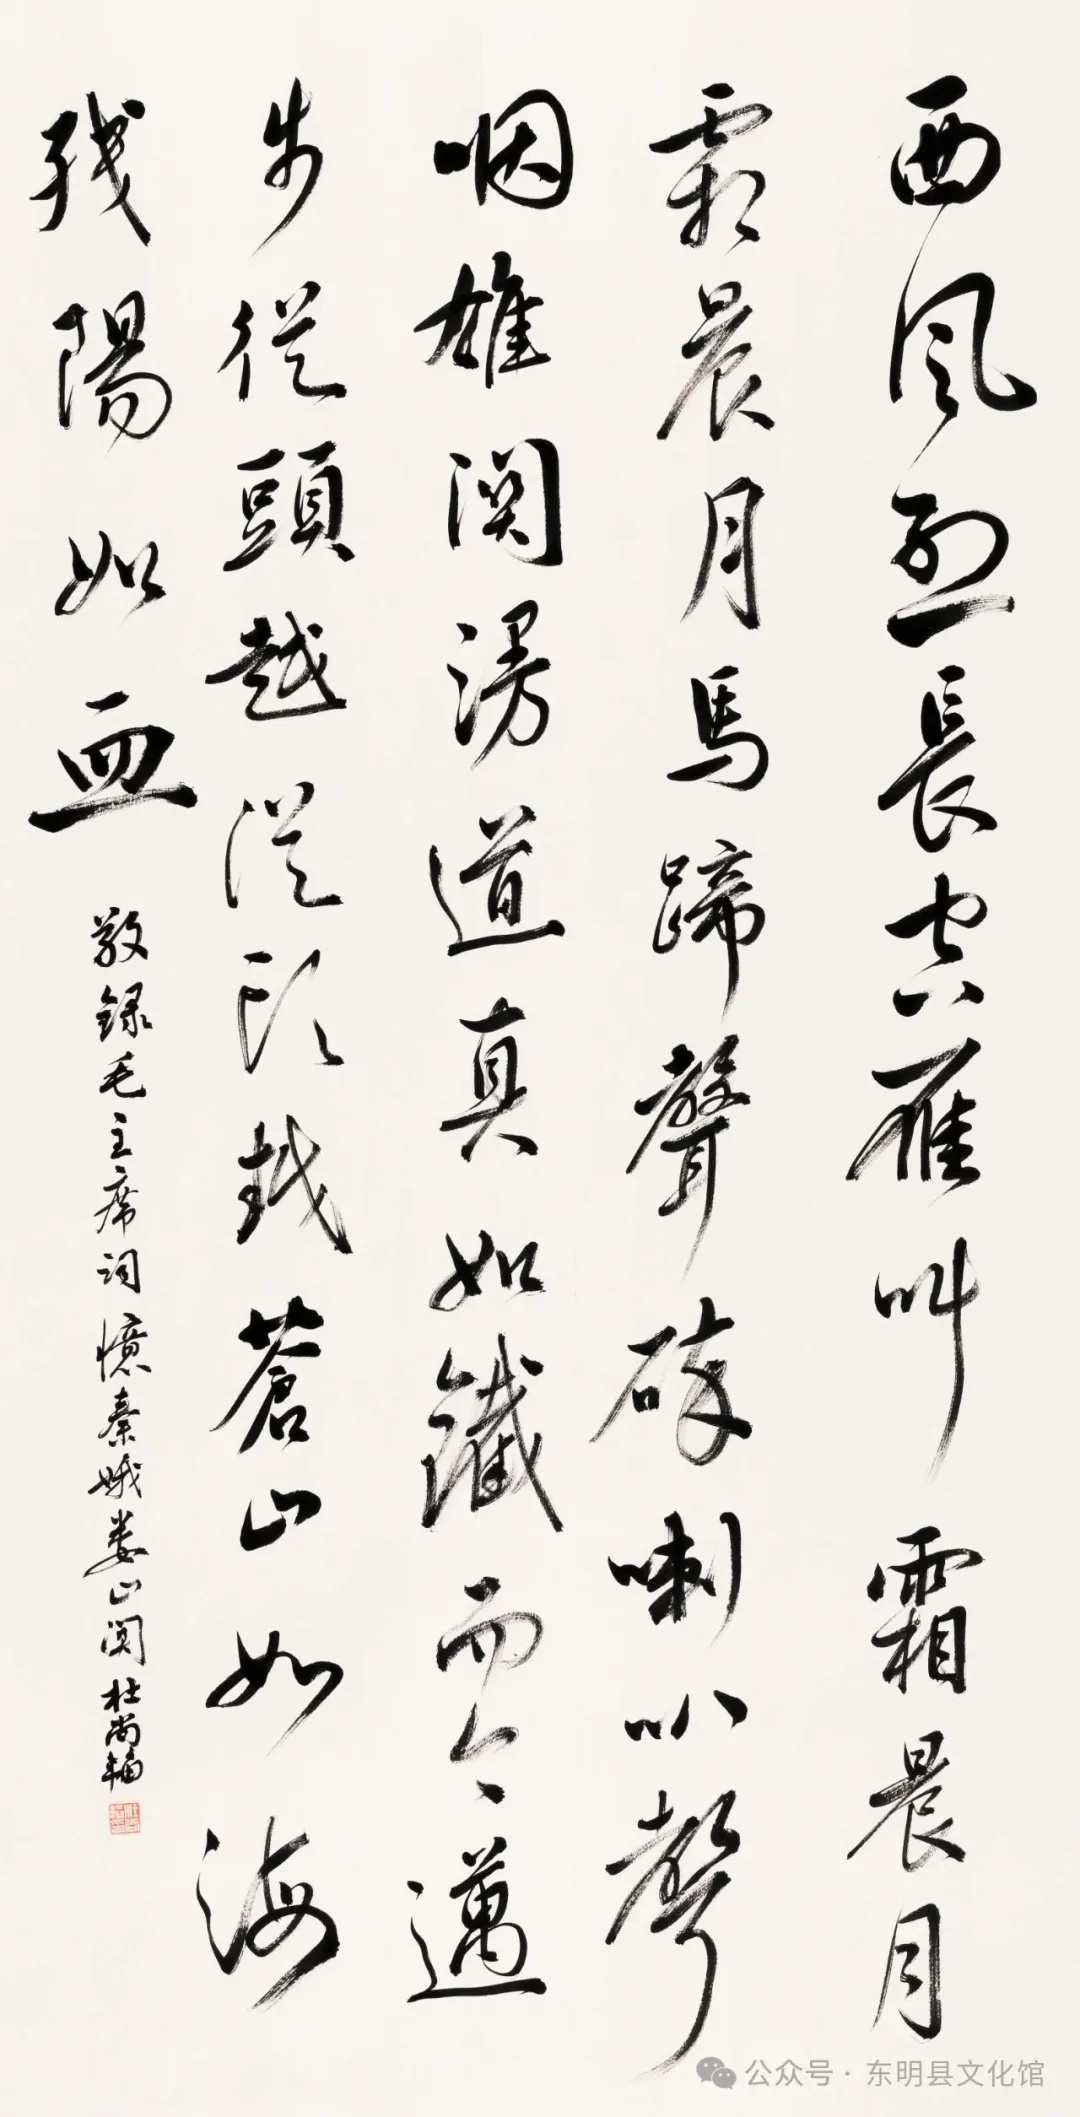 西风烈長空雁叫霜晨月
霜晨月馬蹄聲碎喇叭聲
咽雄関漫道真如鐵而今邁
步從頭越從头越蒼山如海
残陽如血
敬録毛主席词憶秦娥娄山関杜尚輻
公众号·东明县文化馆